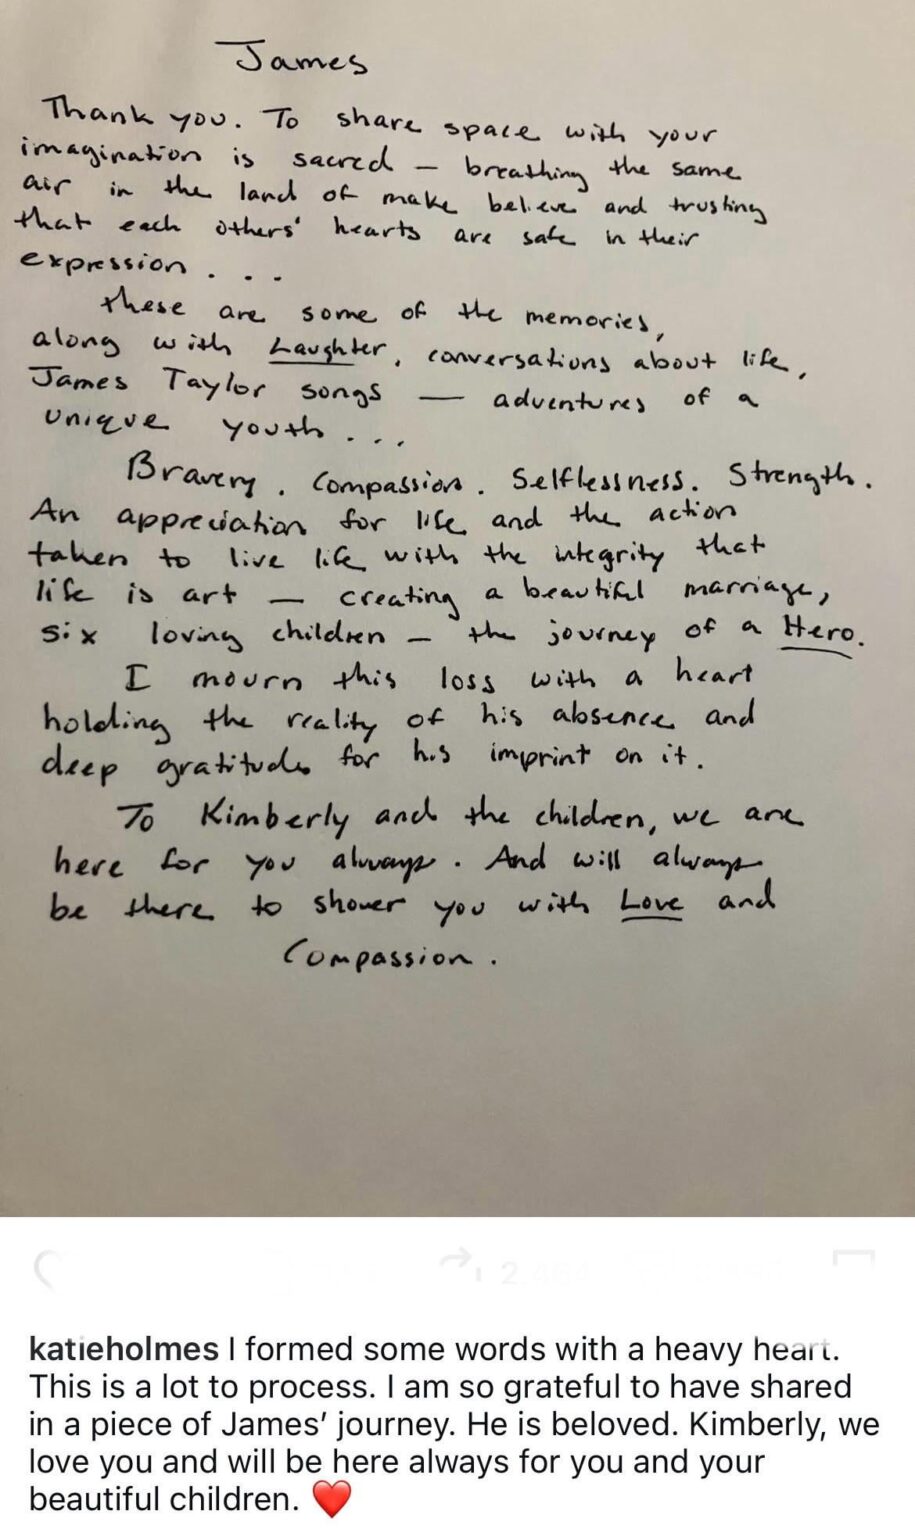 James
Thank you. To share space with your
imagination is sacred – breathing the same
air in the land of make believe and trusting
that each others' hearts are safe in their
expression . . .
these are some of the memories,
along with Laughter, conversations about life,
James Taylor songs — adventures of a
unique youth . . .
Bravery. Compassion. Selflessness. Strength.
An appreciation for life and the action
taken to live life with the integrity that
life is art — creating a beautiful marriage,
six loving children – the journey of a Hero.
I mourn this loss with a heart
holding the reality of his absence and
deep gratitude for his imprint on it.
To Kimberly and the children, we are
here for you always. And will always
be there to shower you with Love and
Compassion.
katieholmes I formed some words with a heavy heart.
This is a lot to process. I am so grateful to have shared
in a piece of James’ journey. He is beloved. Kimberly, we
love you and will be here always for you and your
beautiful children. ❤️